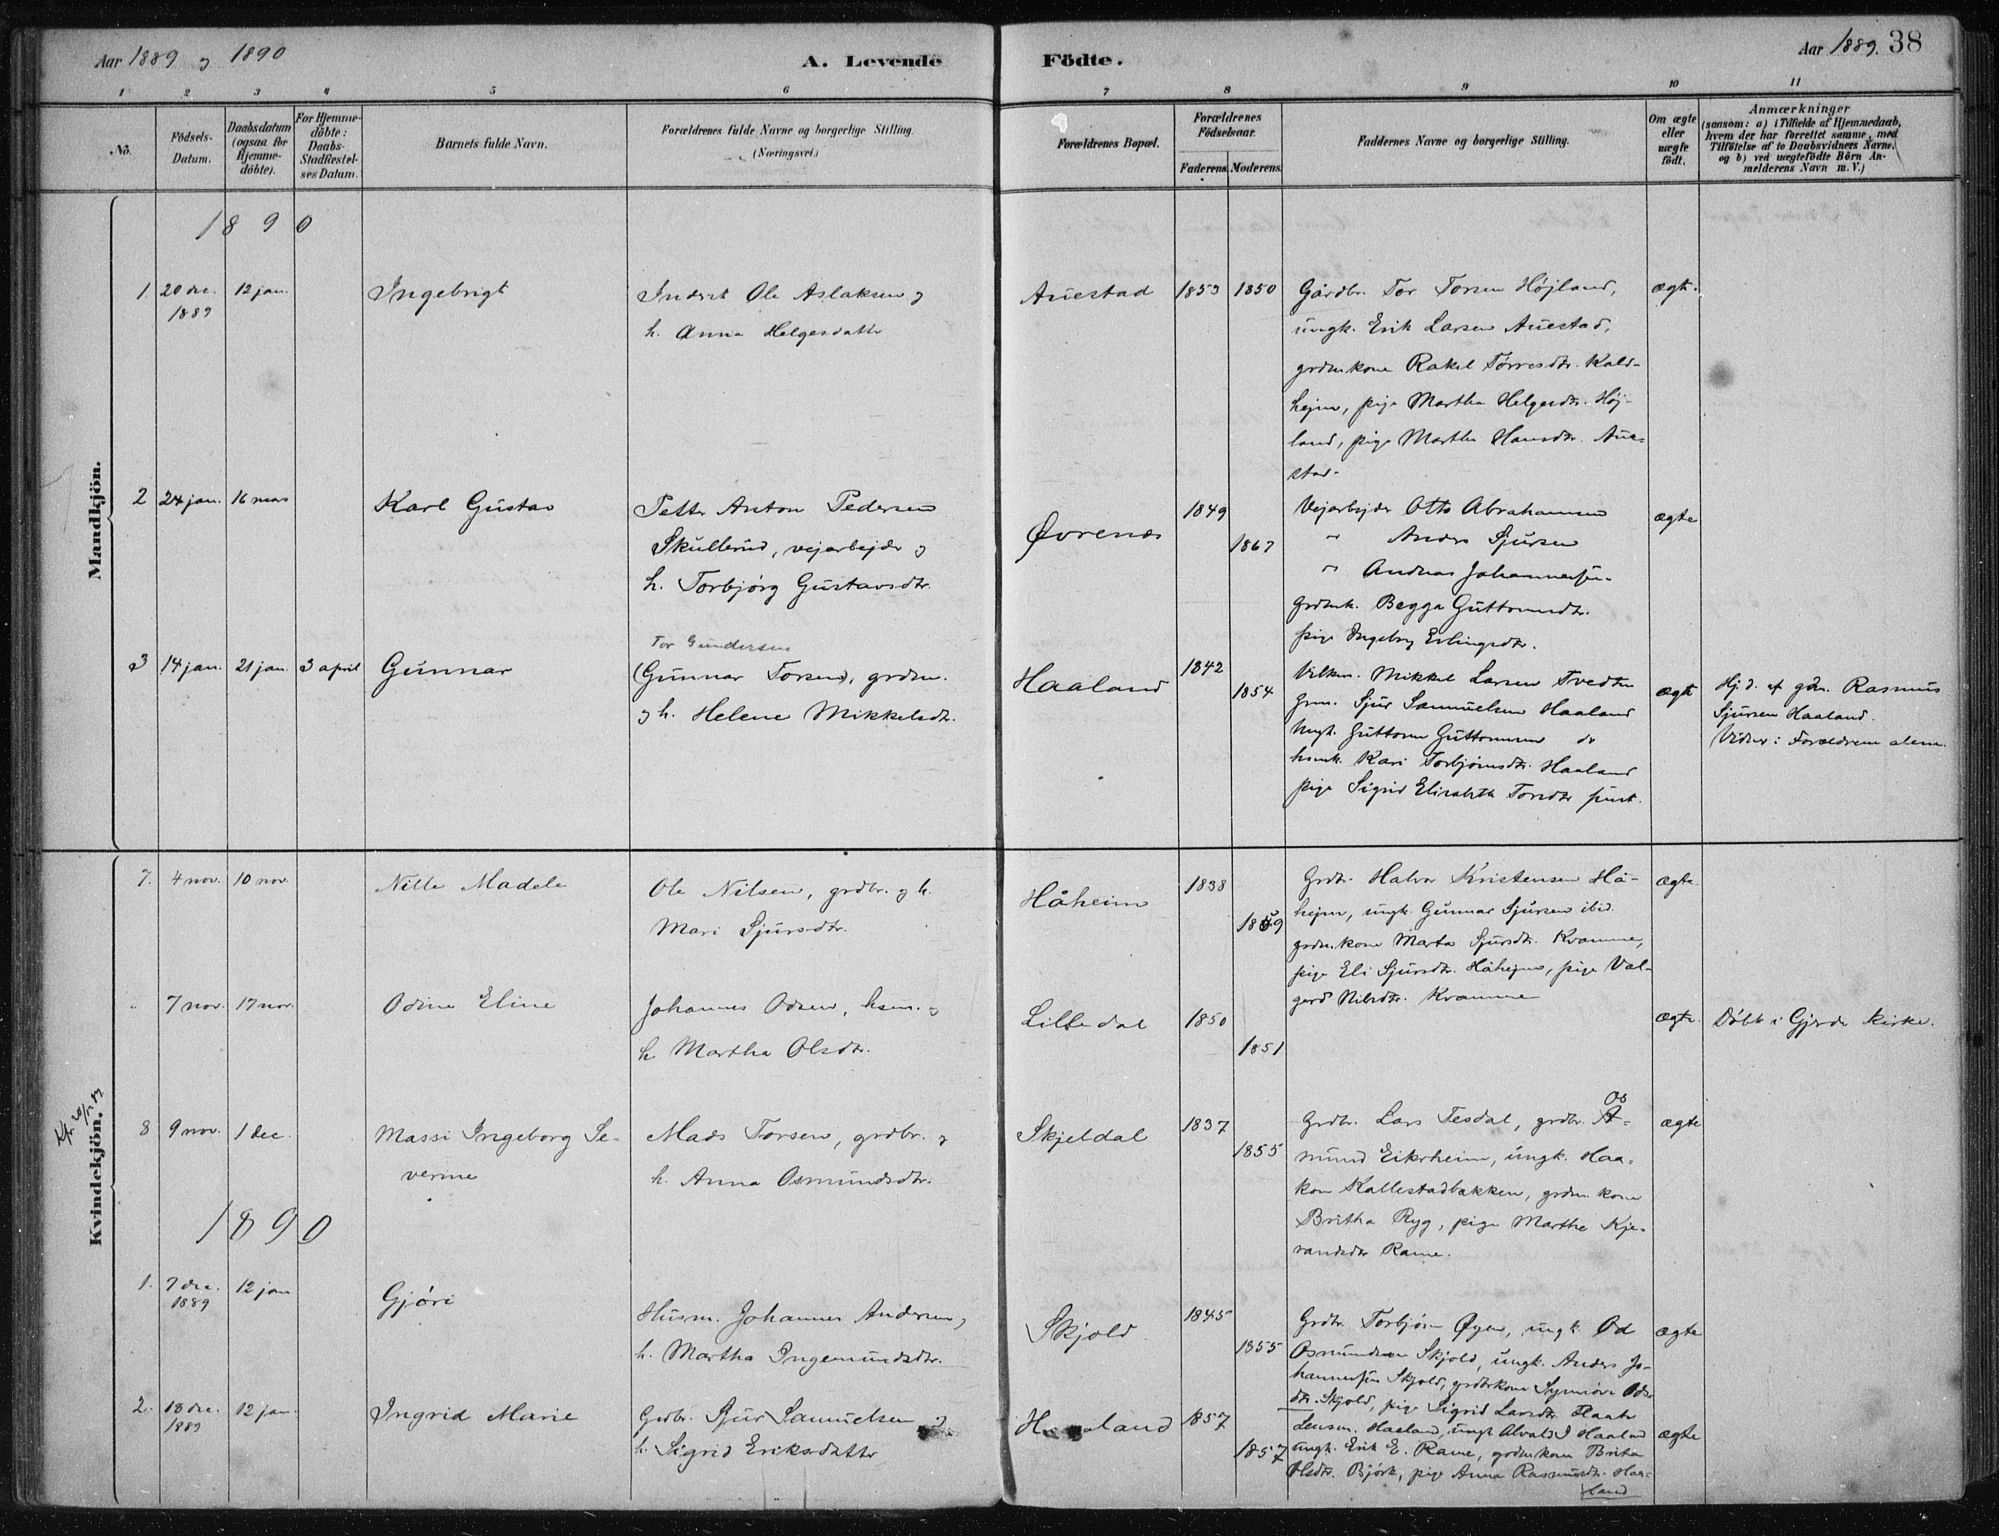 Aar 1889 og 1890
A. Levende Födte.
Aar 1889. 38
1 2 3 4 5 6 7 8 9 10 11
No.
Födsels-Datum.
Daabsdatum (ogsaa for Hjemme-döbte).
For Hjemme-döbte: Daabs-Stadfæstel-ses Datum.
Barnets fulde Navn.
Forældrenes fulde Navne og borgerlige Stilling. (Næringsvei.)
Forældrenes Bopæl.
Forældrenes Födselsaar.
Faderens Moderens
Faddernes Navne og borgerlige Stilling.
Om ægte eller uægte födt.
Anmærkninger
(saasom: a) i Tilfælde af Hjemmedaab,
hvem der har forrettet samme, med
Tilföielse af to Daabsvidners Navne,
og b) ved uægtefödte Börn An-
melderens Navn m. V.)
Mandkjön.
1890
1. 20 dec. 1889 12 jan. Ingebrigt
Inderst Ole Aslaksen og
h. Anna Helgesdatter
Auestad 1853 1850
Gårdbr. Tor Torsen Højland,
ungk. Erik Larsen Auestad,
grdm.kone Rakel Tørresdtr. Kald-
hejm, pige Martha Helgesdtr. Høj-
land, pige Martha Hansdtr. Aue-
stad.
ægte.
2 24 jan. 16 mars Karl Gustav
Petter Anton Pedersen
Skullerud, vejarbejder og
h. Torbjørg Gustavsdtr.
Øvrenæs 1849 1867
Vejarbejder Otto Abrahamsen
" Anders Sjursen
" Andreas Johannessen
Grdmk. Begga Guttormsdtr.
pige Ingeborg Erlingsdtr.
ægte
3 14 jan. 21 jan. 3 april Gunnar
Tor Gundersen
(Gunnar Torsen), grdm.
og h. Helene Mikkelsdtr.
Haaland 1842 1854
Mikkel Larsen Tvedten
grm. Sjur Samuelsen Haaland
Ungk. Guttorm Guttormsen do
hsmk. Kari Torbjørnsdtr. Haaland
pige Sigrid Elisabeth Torsdtr
ægte
Hj.d. af gdm. Rasmus
Sjursen Haaland.
Vidner: Forældrene alene.
Kvindekjön.
7. 4 nov. 10 nov. Nille Madele
Ole Nilsen, grdbr. og h.
Mari Sjursdtr.
Håheim 1838 1859
Grdbr. Halvor Kristensen Hå-
hejm, ungk. Gunnar Sjursen ibid.
grdm.kone Marta Sjursdtr. Kvamme,
pige Eli Sjursdtr. Håhejm, pige Val-
gerd Nilsdtr. Kvamme
ægte.
" 7 nov. 17 nov. Odine Eline
Johannes Odsen, hsm. og
h Martha Olsdtr.
Lilledal 1850 1851
ægte. Døbt i Gjerde kirke.
8 9 nov. 1 dec. Massi Ingeborg Se-
verine
Mads Torsen, grdbr. og
h. Anna Osmundsdtr.
Skjeldal 1837 1855
Os
Grdbr. Lars Tesdal, grdbr. A-
mund Eikrheim, ungk. Haa-
kon Kallestadbakken, grdm.kone
Britha Ryg, pige Marthe Kje-
randsdtr Rame.
ægte
1890
1. 7 dec. 1889 12 jan Gjøri
Husm. Johannes Andersen og
h. Martha Ingemundsdtr.
Skjold 1845 1855
Grdbr. Torbjørn Øyen, ungk. Od
Osmundsen Skjold, ungk. Anders Jo-
hannessen Skjold, grdbrkone Synnøve Ods-
dtr. Skjold, pige Sigrid Larsdtr.
ægte
2. 18 dec. 1889 12 jan. Ingrid Marie
Grdbr. Sjur Samuelsen og
h. Sigrid Eriksdatter
Haaland 1857 1857
Haaland, ungk Alvald J Haaland
ungk. Erik E. Rame, grdm.kone Brita
Olsdtr. Bjørk, pige Anna Rasmusdtr. Haa-
land
ægte